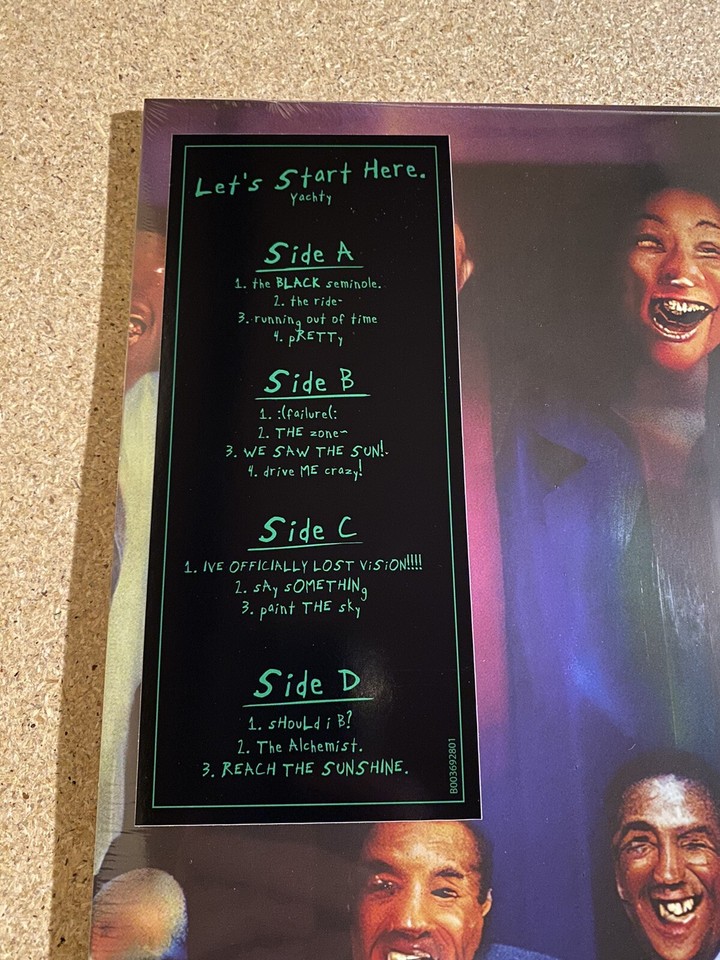 Let's Start Here.
Yachty
Side A
1. the BLACK seminole.
2. the ride-
3. running out of time
4. pRETTy
Side B
1. :(failure(:
2. THE zone~
3. WE SAW THE SUN!.
4. drive ME crazy!
Side C
1. IVE OFFICIALLY LOST ViSiON!!!!
2. sAy sOMETHINg
3. paint THE sky
Side D
1. sHouLd i B?
2. The Alchemist.
3. REACH THE SUNSHINE.
B003692801